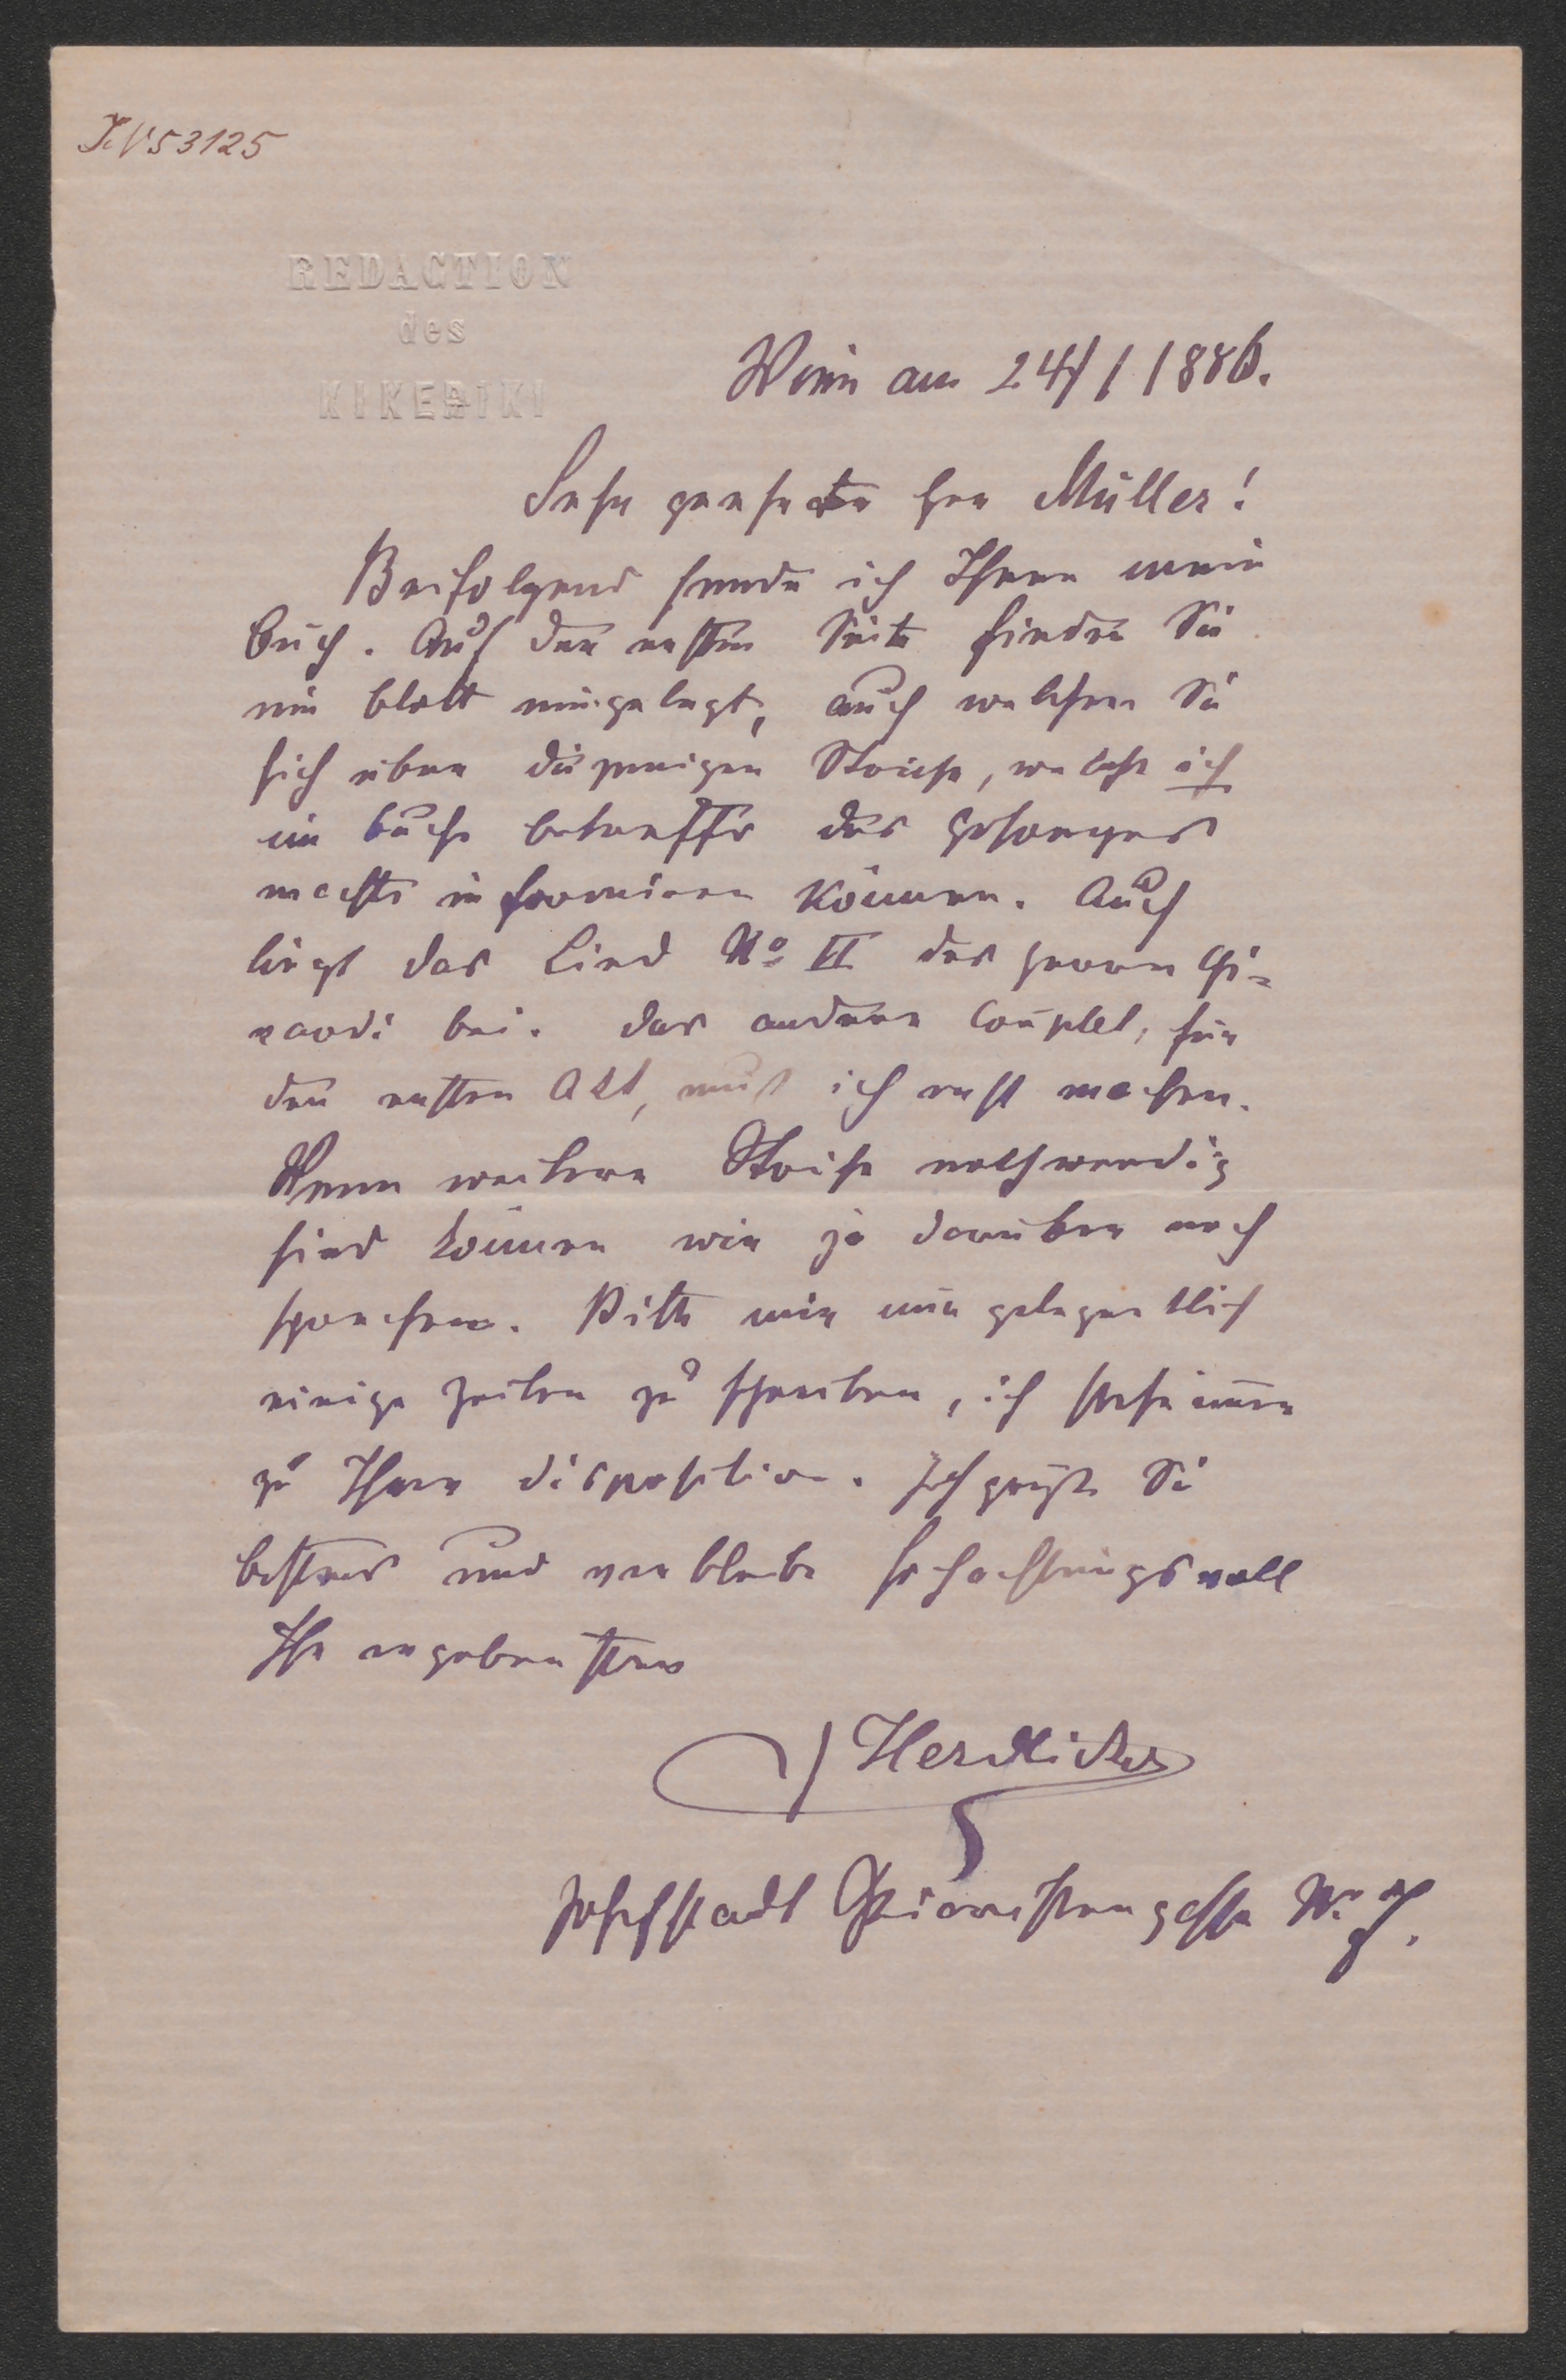 IN 53125
REDACTION
des
KIKERIKI
Wien am 24/1 1886.
Sehr geehrter Herr Müller!
Beifolgend sende ich Ihnen mein
Buch. Auf der ersten Seite finden Sie
ein Blatt eingelegt, auch welchem Sie
sich über diejenigen Striche, welche ich
im Buche betreffs des Gesanges
machte informiren können. Auch
liegt das Lied No II des Herrn Gi=
rardi bei. Das andere Couplet, für
den ersten Akt, muß ich erst machen.
Wenn weitere Striche nothwendig
sind können wir ja darüber noch
sprechen. Bitte mir nur gelegentlich
einige Zeilen zu schreiben, ich stehe immer
zu Ihrer Disposition. Ich grüße Sie
bestens und verbleibe hochachtungsvoll
Ihr ergebenster
Herdlicka
Josefstadt Piaristengasse Nr